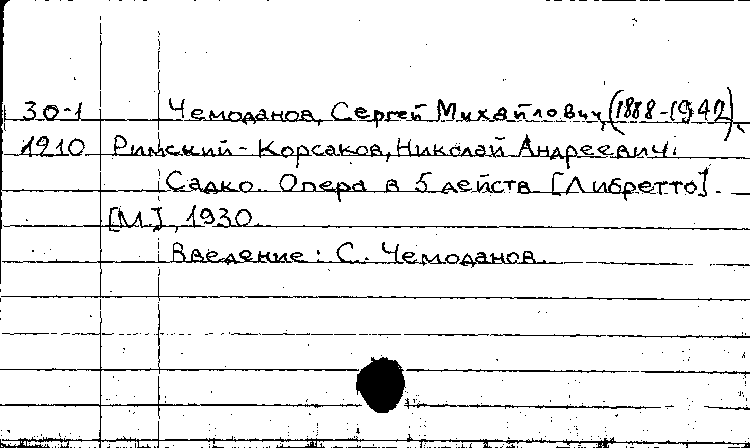 30-1 Чемоданов, Сергей Михайлович, (1888-1942).
1910 Римский-Корсаков, Николай Андреевич.
Садко. Опера в 5 действ [Либретто].
[М.], 1930.
Введение: С. Чемоданов.